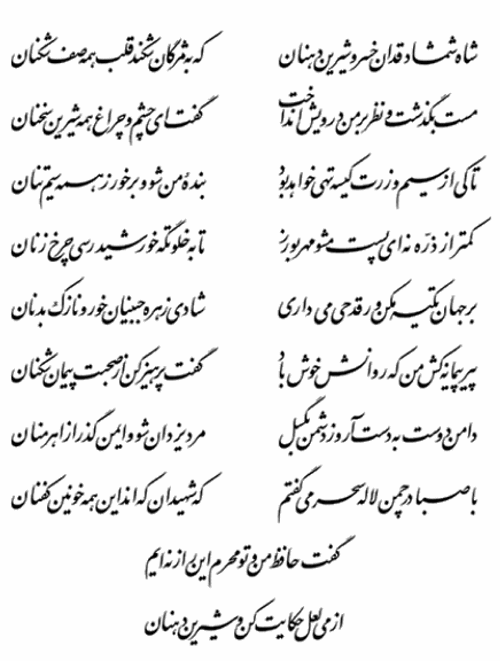 شاه شمشادقدان خسرو شیرین دهنان که به مژگان شکند قلب همه صف شکنان
مست بگذشت و نظر بر من درویش انداخت گفت ای چشم و چراغ همه شیرین سخنان
تا کی از سیم و زرت کیسه تهی خواهد بود بندهٔ من شو و برخور ز همه سیم تنان
کمتر از ذرّه نه ای پست مشو مهر بورز تا به خلوتگه خورشید رسی چرخ زنان
بر جهان تکیه مکن ور قدحی می داری شادی زهره جبینان خور و نازک بدنان
پیر پیمانه کش من که روانش خوش باد گفت پرهیز کن از صحبت پیمان شکنان
دامن دوست به دست آر و ز دشمن بگسل مرد یزدان شو و ایمن گذر از اهرمنان
با صبا در چمن لاله سحر می گفتم که شهیدان که اند این همه خونین کفنان
گفت حافظ من و تو محرم این راز نه ایم
از می لعل حکایت کن و شیرین دهنان